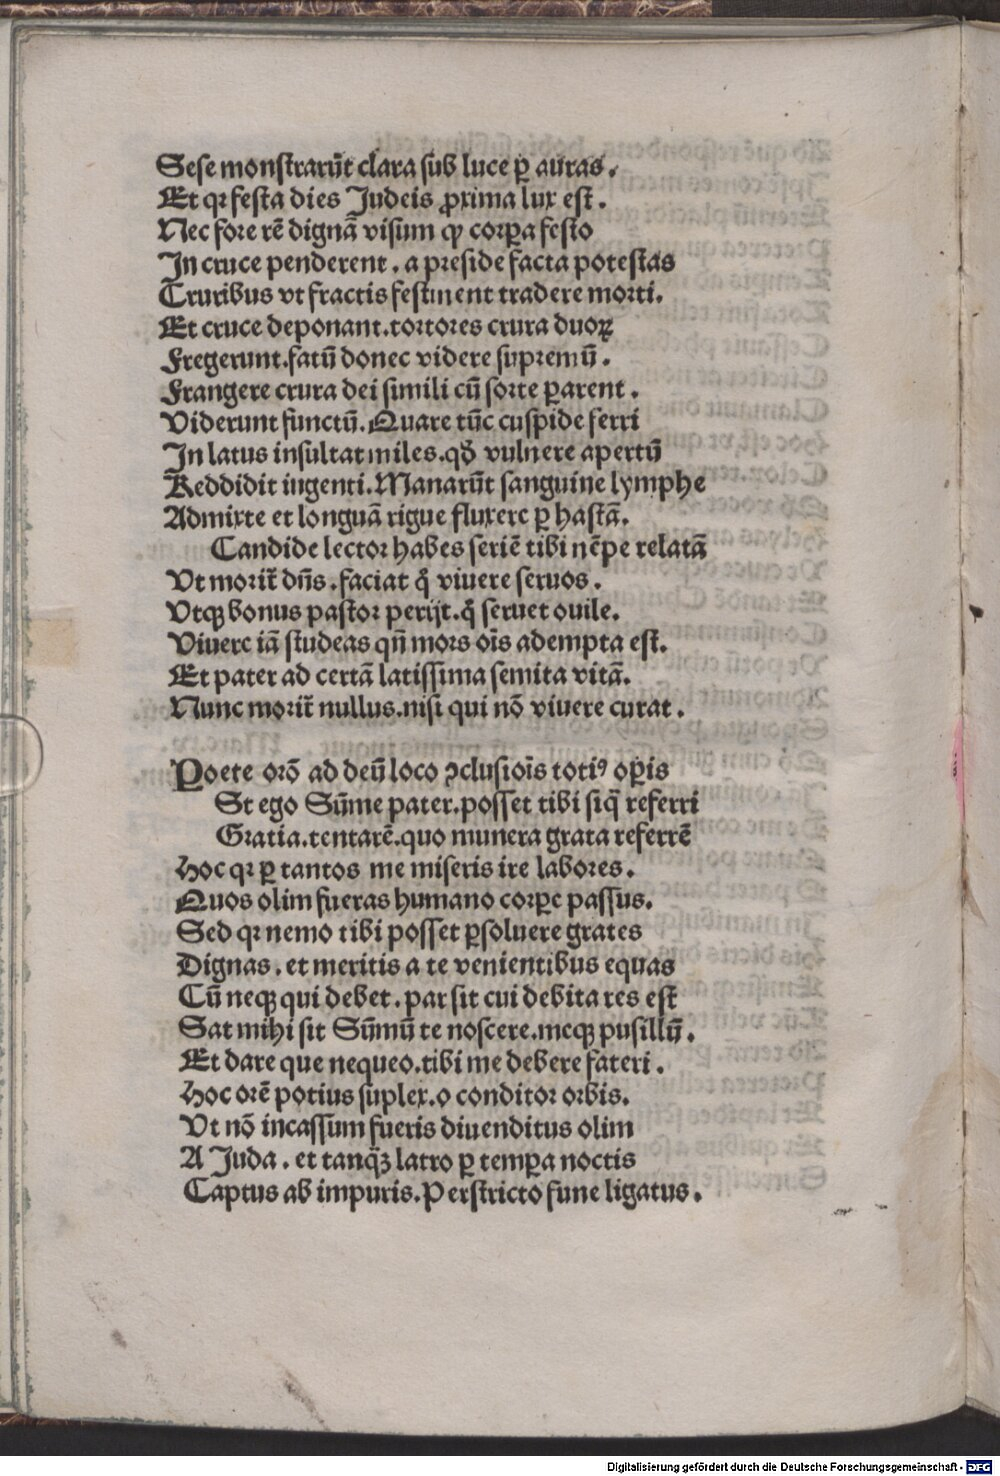 Sese monstrarūt clara sub luce ꝑ auras.
Et qꝛ festa dies Judeis ꝓxima lux est.
Nec fore rē dignā visum ꝙ corꝑa festo
In cruce penderent. a preside facta potestas
Cruribus vt fractis festinent tradere morti.
Et cruce deponant. tortores crura duoꝝ
Fregerunt. fatū donec videre supremū.
Frangere crura dei simili cū sorte ꝑarent.
Viderunt functū. Quare tūc cuspide ferri
In latus insultat miles. qd̄ vulnere apertū
Reddidit ingenti. Manarūt sanguine lymphe
Admixte et longuā rigue fluxere ꝑ hastā.
Candide lector habes seriē tibi nēpe relatā
Vt morit̄ dn̄s. faciat q̄ viuere seruos.
Vtqꝫ bonus pastor perijt. q̄ seruet ouile.
Viuere iā studeas qn̄ mors oīs adempta est.
Et pater ad certā latissima semita vitā.
Nunc morit̄ nullus. nisi qui nō viuere curat.
Poete orō ad deū loco ꝯclusiois̄ totiꝰ oꝑis
St ego Sūme pater. posset tibi siq̄ referri
Gratia. tentarē. quo munera grata referrē
Hoc qꝛ ꝑ tantos me miseris ire labores.
Quos olim fueras humano corꝑe passus.
Sed qꝛ nemo tibi posset ꝑsoluere grates
Dignas. et meritis a te venientibus equas
Cū neqꝫ qui debet. par sit cui debita res est
Sat mihi sit Sūmū te noscere. meqꝫ pusillū.
Et dare que nequeo. tibi me debere fateri.
Hoc orē potius suplex. o conditor orbis.
Vt nō incassum fueris diuenditus olim
A Juda. et tanq̄ꝫ latro ꝑ temꝑa noctis
Captus ab impuris. Perstricto fune ligatus.
Digitalisierung gefördert durch die Deutsche Forschungsgemeinschaft - DFG